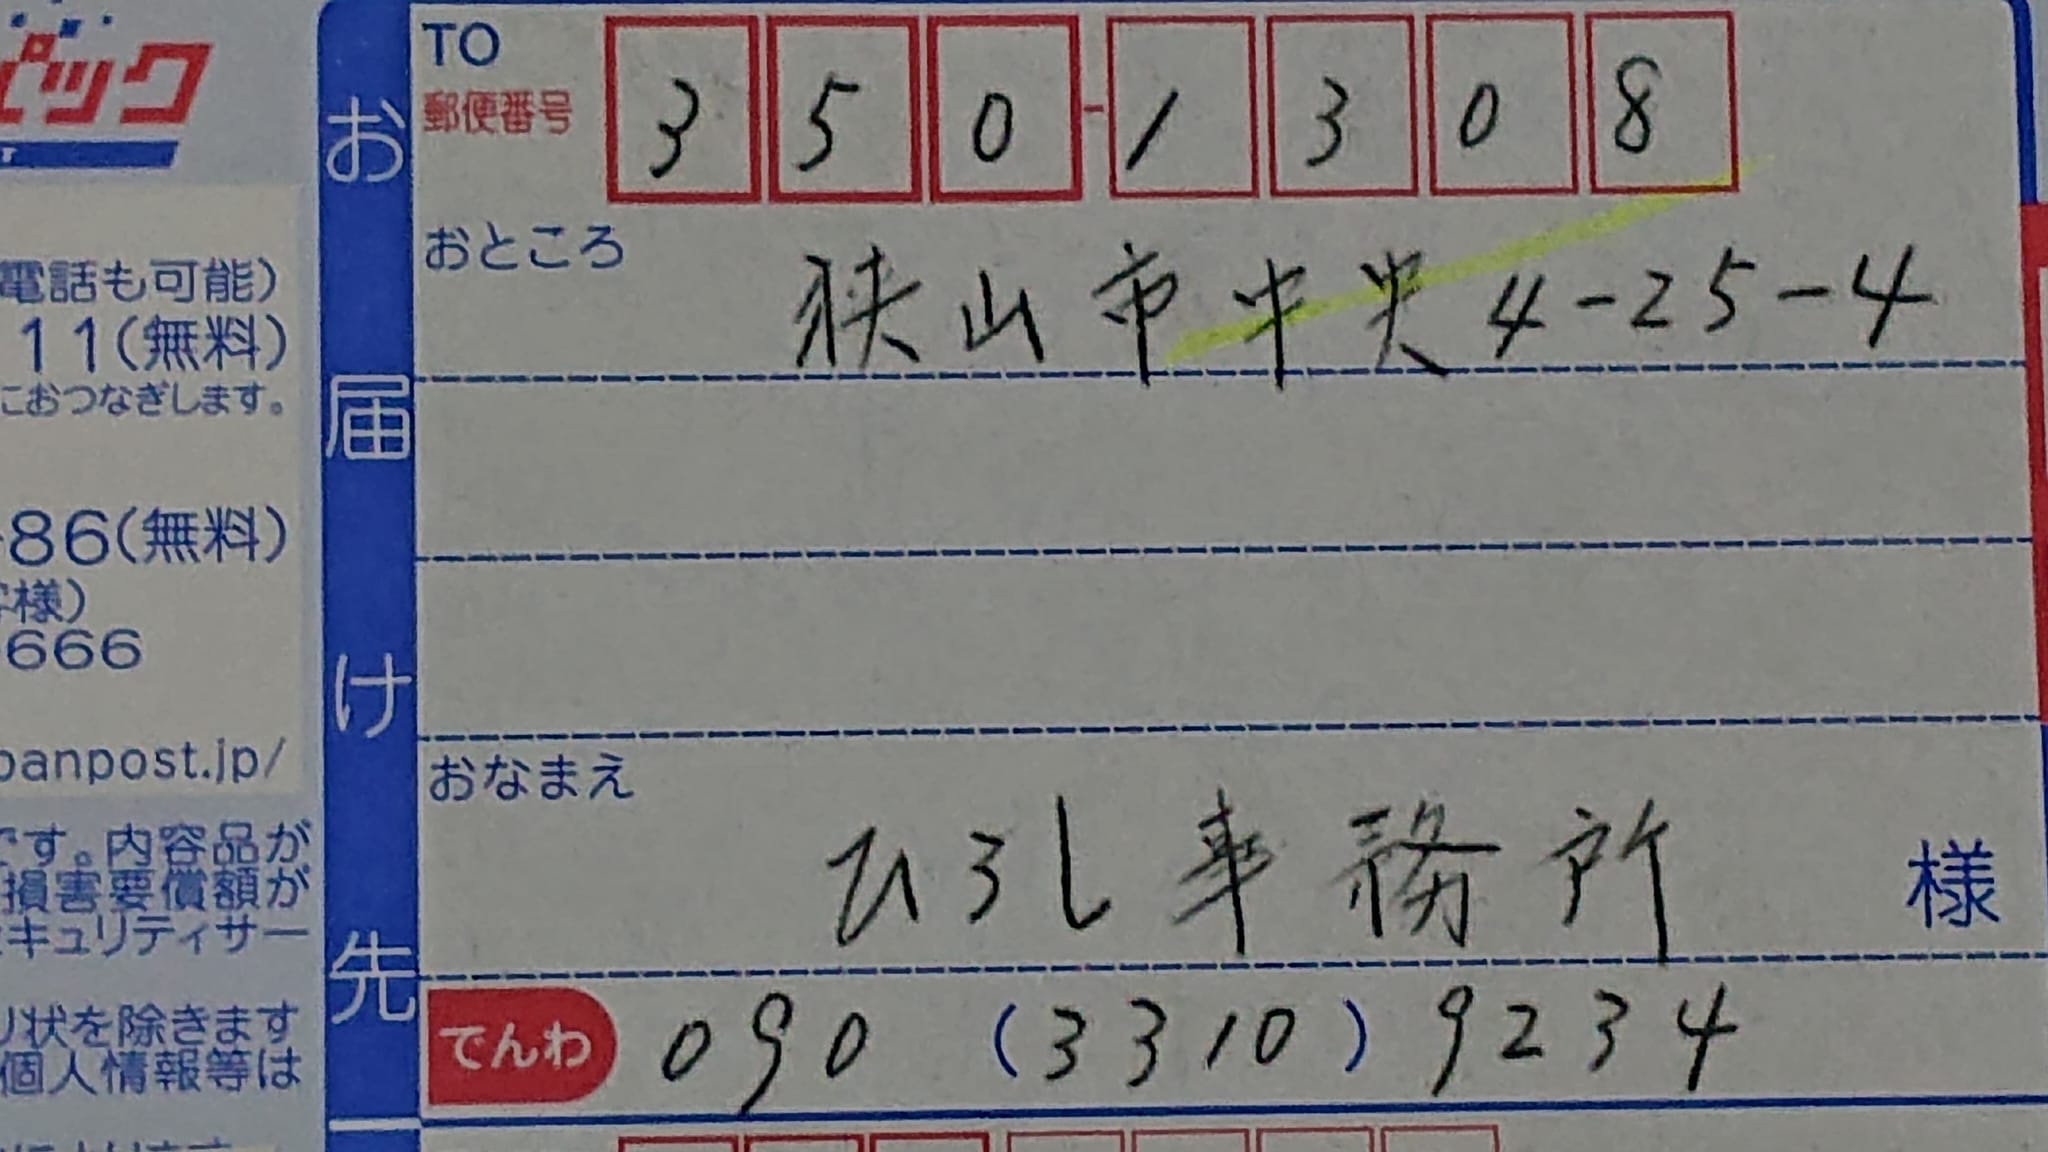 パック
T
TO
郵便番号
350-1308
おところ
狭山市中央4-25-4
電話も可能)
11(無料)
におつなぎします。
-86(無料)
様)
666
panpost.jp/
おなまえ
ひろし事務所 様
です。内容品が
損害要償額が
セキュリティサー
り状を除きます
個人情報等は
てんわ 090 (3310) 9234
お届け先